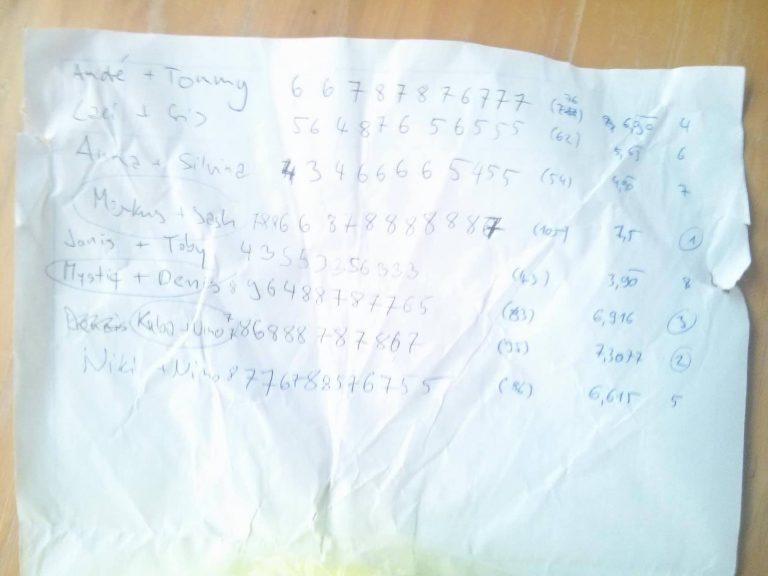 André + Tommy 6 6 7 8 7 8 7 6 7 7 7 (76) 6,90 4
5 6 4 8 7 6 5 6 5 5 5 (62) 6
Anna + Silvina 4 3 4 6 6 6 6 5 4 5 5 (54) 4,90 7
Markus + 8 7 8 8 8 8 8 8 7 (105) 7,5 1
Janis + Toby 4 3 5 5 3 3 5 6 3 3 3 (43) 3,90 8
Mystiq + Denis 8 9 6 4 8 8 7 8 7 7 6 5 (83) 6,916 3
Kuba + Nino 7 8 6 8 8 8 7 8 7 8 6 7 (95) 7,3077 2
Niki + Nino 8 7 7 6 7 8 8 5 7 6 7 5 5 (86) 6,615 5